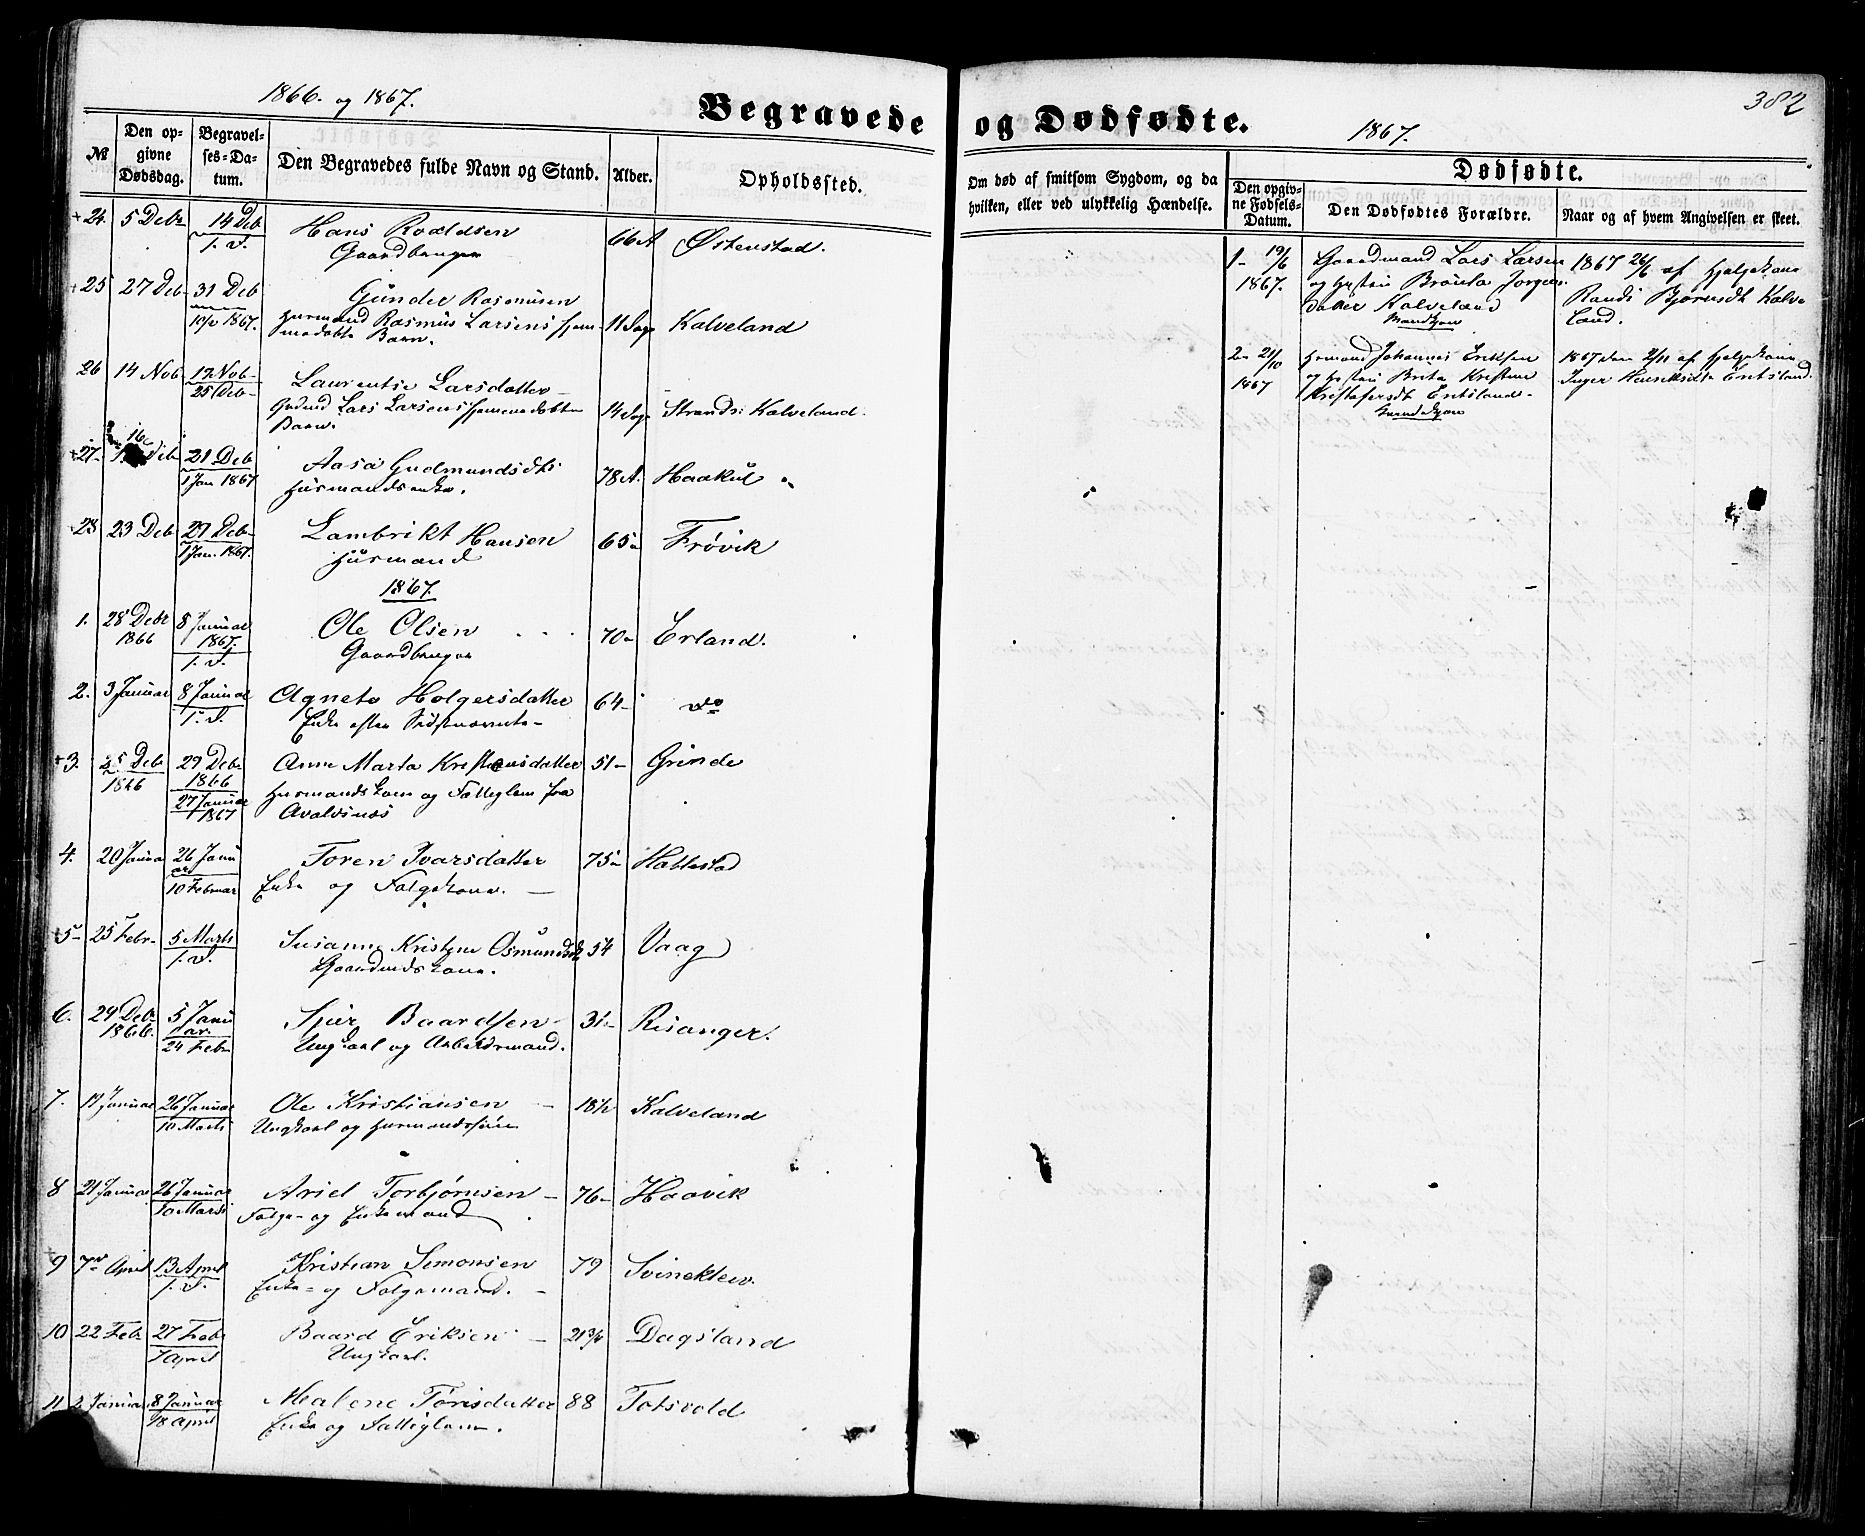 1866. og 1867.
Begravede og Dødfødte.
1867.
382
№
Den opgivne Dødsdag.
Begravelses-Datum.
Den Begravedes fulde Navn og Stand.
Alder.
Opholdssted.
Om død af smitsom Sygdom, og da hvilken, eller ved ulykkelig Hændelse.
Dødfødte.
Den opgivne Fødsels-Datum.
Den Dødfødtes Forældre.
Naar og af hvem Angivelsen er skeet.
24. 5 Debr 14 Deb Hans Roaldsen 66 A Østenstad.
1. d. Gaardbruger
25 27 Deb 31 Deb Gunder Rasmussen
1867. Huusmand Rasmus Larsens hjem- 11 Dage Kalveland
medøbte Barn.
26 14 Nov 17 Nov Laurentse Larsdatter
25 Deb Lars Larsens hjemmedøbte 14 Dage Strands. Kalveland.
Barn.
27 16 Deb 21 Deb Aasa Gudmundsdtr 78 A. Haakul
1 Jan 1867 Huusmandsenke.
28 23 Deb 27 Deb Lambrikt Hansen 65 Frøvik
1 Jan. 1867. Huusmand
1867.
1. 28 Debr 8 Januar Ole Olsen 70 Erland.
1866 1867. Gaardbruger
1. d.
2. 3 Januar 8 Januar Agneta Holgersdatter 64 do
1. d. Enke efter Sidstnævnte
3. 25 Deb 29 Deb Anne Marta Kristensdatter 51 Grinde
1866 1866 Huusmandskone og Fattiglem fra
27 Januar Avaldsnes
1867
4. 20 Januar 26 Januar Toren Ivarsdatter 75 Hattestad
10 Februar Enke og Følgekone.
5 25 Febr. 5 Marts Susanne Kristyne Osmundsdt 54 Vaag
1. d. Gaardmdskone.
6. 29 Deb 5 Januar Sjur Baardsen 31 Risanger.
1866. 24 Febr Ungkarl og Arbeidsmand.
7. 19 Januar 26 Januar Ole Kristiansen 18½ Kalveland
10 Marts Ungkarl og Huusmandssøn
8 21 Januar 26 Januar Ariel Torbjørnsen 76 Haavik
10 Marts Følge- og Enkemand
9 7de April 13 April Kristian Simonsen 79 Svineklev.
1. d. Enke- og Følgemand.
10 22 Feb 27 Feb Baard Eriksen 21 Dagsland
7 April Ungkarl.
11 2 Januar 8 Januar Malene Tørisdatter 88 Totsvold
18 April Enke og Fattiglem.
1- 19/6 Gaardmand Lars Larsen 1867 26/6 af Hjelpekone
1867. og Hustru Bronla Jørgens- Randi Bjørnsdt Kalve
datter Kalveland land.
Mandkjøn
2- 21/10 Huusmand Johannes Eriksen 1867 den 2/11 af Hjelpekone
1867 og Hustru Brita Kristine Inger Henriksdtr Entsland.
Kristofersdt Entsland.
Qvindekjøn